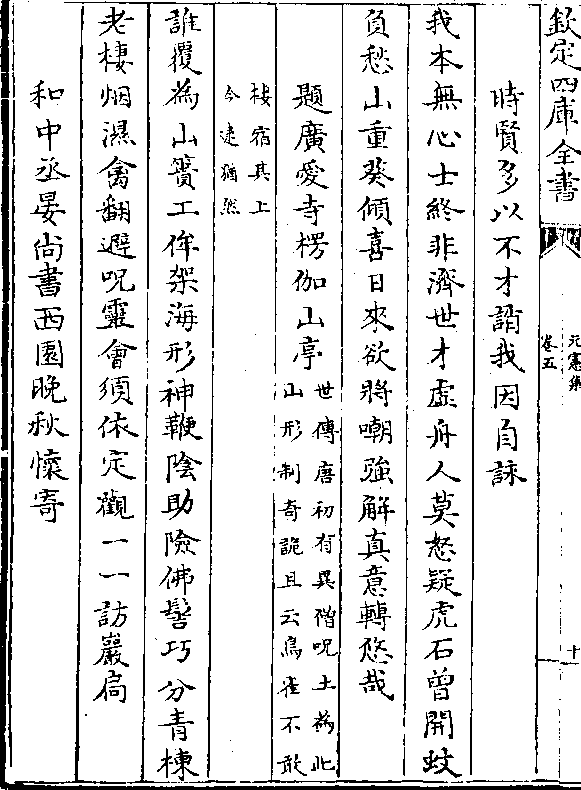 欽定四庫全書
元憲集
卷五
十
時賢多以不才誚我因自詠
我本無心士終非濟世才虛舟人莫怒疑虎石曾開蚊
負愁山重葵傾喜日來欲將嘲強解真意轉悠哉
題廣愛寺楞伽山亭世傳唐初有異僧呪土為此
山形制奇詭且云鳥雀不敢
棲宿其上
今逮猶然
誰覆為山簣工侔架海形神鞭陰助險佛髻巧分青棟
老棲烟濕禽翻避呪靈會須依定觀一一訪巖扃
和中丞晏尚書西園晚秋懷寄